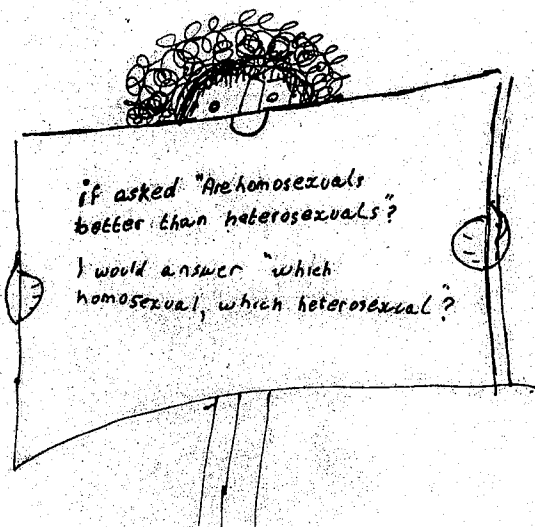 if asked "Are homosexuals
better than heterosexuals"?
I would answer "which
homosexual, which heterosexual"?